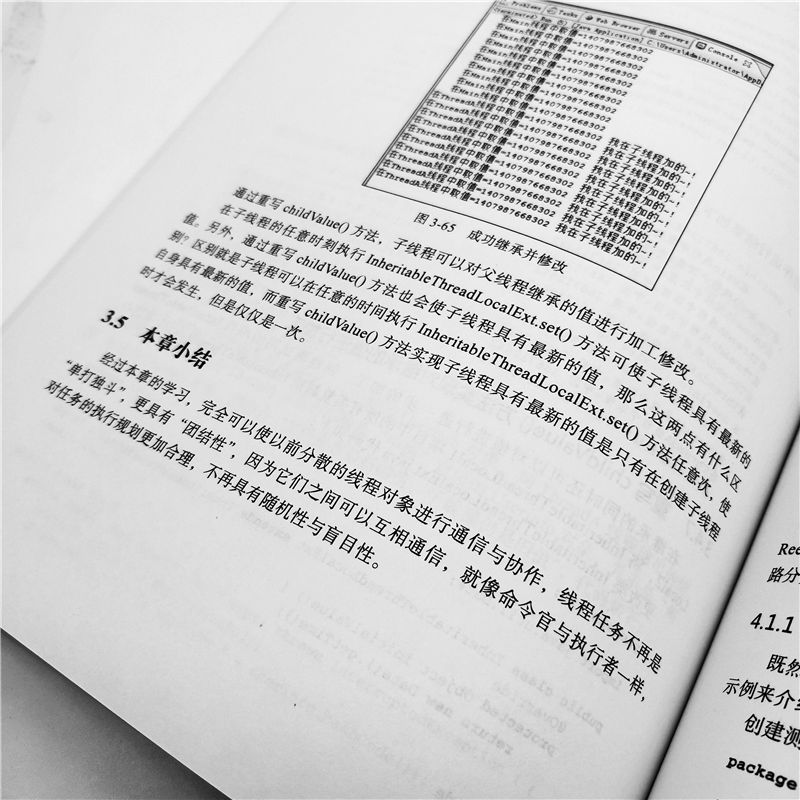 Problems Tasks Web Browser Servers Console
<terminated> Run (5) [Java Application] C:\Users\Administrator\AppD
在Main线程中取值=1407987668302
在Main线程中取值=1407987668302
在Main线程中取值=1407987668302
在Main线程中取值=1407987668302
在Main线程中取值=1407987668302
在Main线程中取值=1407987668302
在Main线程中取值=1407987668302
在Main线程中取值=1407987668302
在ThreadA线程中取值=1407987668302 我在子线程加的~!
在ThreadA线程中取值=1407987668302 我在子线程加的~!
在ThreadA线程中取值=1407987668302 我在子线程加的~!
在ThreadA线程中取值=1407987668302 我在子线程加的~!
在ThreadA线程中取值=1407987668302 我在子线程加的~!
在ThreadA线程中取值=1407987668302 我在子线程加的~!
在ThreadA线程中取值=1407987668302 我在子线程加的~!
图 3-65 成功继承并修改
通过重写 childValue() 方法，子线程可以对父线程继承的值进行加工修改。
在子线程的任意时刻执行 InheritableThreadLocalExt.set() 方法可使子线程具有最新的
值。另外，通过重写 childValue() 方法也会使子线程具有最新的值，那么这两点有什么区
别？区别就是子线程可以在任意的时间执行 InheritableThreadLocalExt.set() 方法任意次，使
自身具有最新的值，而重写 childValue() 方法实现子线程具有最新的值是只有在创建子线程
时才会发生，但是仅仅是一次。
3.5 本章小结
经过本章的学习，完全可以使以前分散的线程对象进行通信与协作，线程任务不再是
“单打独斗”，更具有“团结性”，因为它们之间可以互相通信，就像命令官与执行者一样，
对任务的执行规划更加合理，不再具有随机性与盲目性。
Ree
路分
4.1.1
既然
示例来介绍
创建测
package